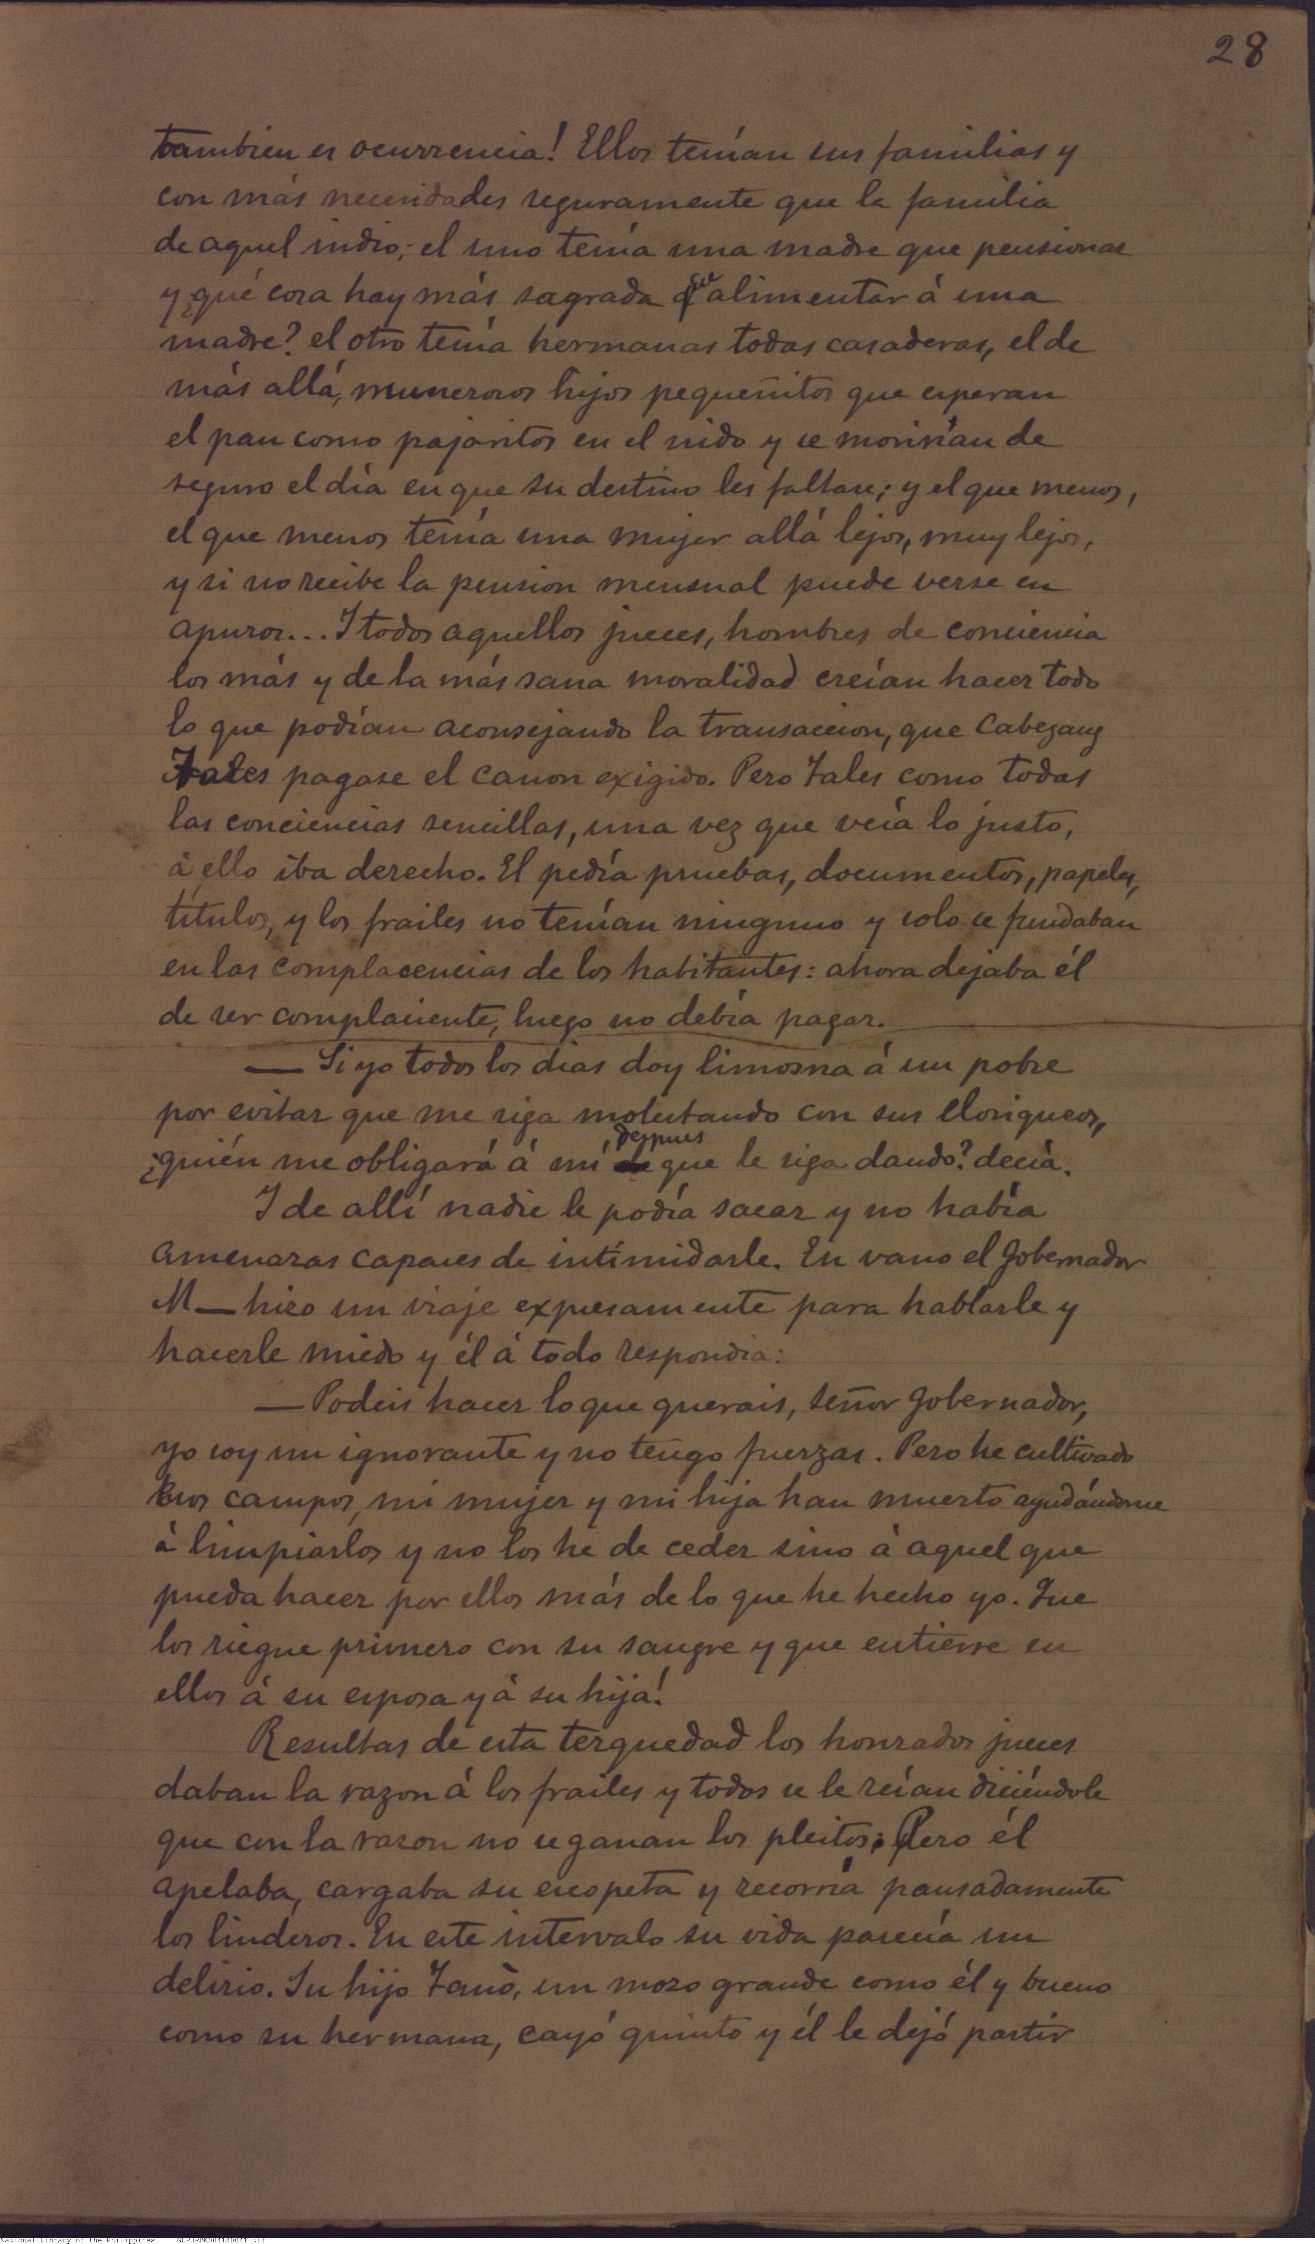 28
tambien es ocurrencia! Ellos tenían sus familias y
con más necesidades seguramente que la familia
de aquel indio; el uno tenía una madre que pensionar
y ¿qué cosa hay más sagrada que alimentar á una
madre? el otro tenía hermanas todas casaderas, el de
más allá, muneroros hijos pequeñitos que esperan
el pan como pajaritos en el nido y se morirían de
seguro el día en que su destino les faltase; y el que menos,
el que menos tenía una mujer allá lejos, muy lejos,
y si no recibe la pension mensual puede verse en
apuros... I todos aquellos jueces, hombres de conciencia
los más y de la más sana moralidad creían hacer todo
lo que podían aconsejando la transaccion, que Cabezang
Tales pagase el canon exigido. Pero Tales como todas
las conciencias sencillas, una vez que veía lo justo,
á ello iba derecho. El pedía pruebas, documentos, papeles,
títulos, y los frailes no tenían ninguno y solo se fundaban
en las complacencias de los habitantes: ahora dejaba él
de ser complaciente, luego no debía pagar.
— Si yo todos los dias doy limosna á un pobre
por evitar que me siga molestando con sus lloriqueos,
¿quién me obligará á mí, despues que le siga dando? decía.
I de allí nadie le podía sacar y no había
amenazas capaces de intimidarle. En vano el Gobernador
M— hizo un viaje expresamente para hablarle y
hacerle miedo y él á todo respondia:
— Podeis hacer lo que querais, señor Gobernador,
yo soy un ignorante y no tengo fuerzas. Pero he cultivado
esos campos, mi mujer y mi hija han muerto ayudándome
á limpiarlos y no los he de ceder sino á aquel que
pueda hacer por ellos más de lo que he hecho yo. Que
los riegue primero con su sangre y que entierre en
ellos á su esposa y á su hija!
Resultas de esta terquedad los honrados jueces
daban la razon á los frailes y todos se le reían diciéndole
que con la razon no se ganan los pleitos. Pero él
apelaba, cargaba su escopeta y recorría pausadamente
los linderos. En este intervalo su vida parecía un
delirio. Su hijo Tanò, un mozo grande como él y bueno
como su hermana, cayó quinto y él le dejó partir
National Library of the Philippines